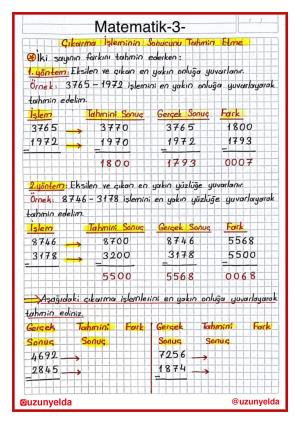 Matematik-3-
Çıkarma İşleminin Sonucunu Tahmin Etme
İki sayının farkını tahmin ederken:
1.yöntem: Eksilen ve çıkan en yakın onluğa yuvarlanır.
Örnek: 3765-1972 işlemini en yakın onluğa yuvarlayarak
tahmin edelim.
İşlem Tahmini Sonuç Gerçek Sonuç Fark
3765 → 3770 3765 1800
- 1972 → - 1970 - 1972 - 1793
1800 1793 0007
2.yöntem: Eksilen ve çıkan en yakın yüzlüğe yuvarlanır.
Örnek: 8746-3178 işlemini en yakın yüzlüğe yuvarlayarak
tahmin edelim.
İşlem Tahmini Sonuç Gerçek Sonuç Fark
8746 → 8700 8746 5568
- 3178 → - 3200 - 3178 - 5500
5500 5568 0068
→ Aşağıdaki çıkarma işlemlerini en yakın onluğa yuvarlayarak
tahmin ediniz.
Gerçek Tahmini Fark Gerçek Tahmini Fark
Sonuç Sonuç Sonuç Sonuç
4692 → 7256 →
- 2845 → - 1874 →
@uzunyelda @uzunyelda